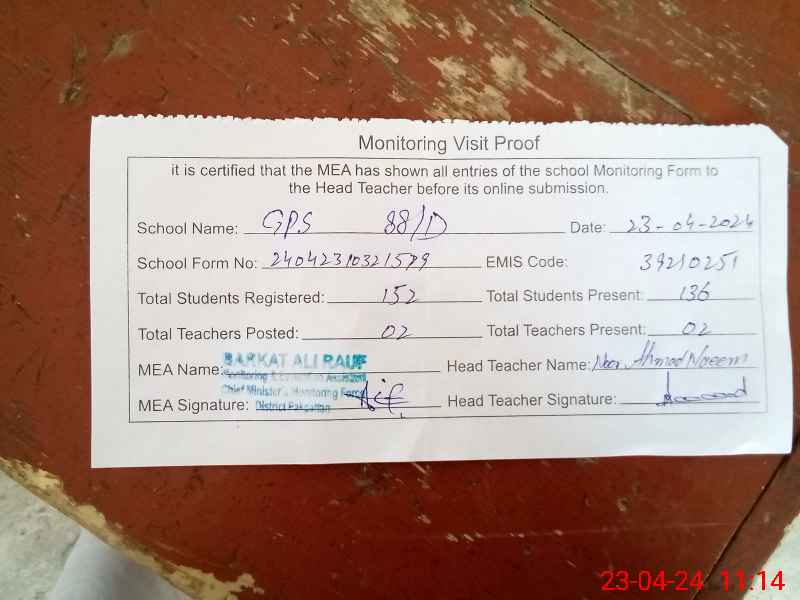 Monitoring Visit Proof
it is certified that the MEA has shown all entries of the school Monitoring Form to
the Head Teacher before its online submission.
School Name: GPS 88/D Date: 23-04-2024
School Form No: 24042310321579 EMIS Code: 39210251
Total Students Registered: 152 Total Students Present: 136
Total Teachers Posted: 02 Total Teachers Present: 02
MEA Name: BARKAT ALI RAUF Head Teacher Name: Noor Ahmad Naeem
Monitoring & Evaluation Assistant
Chief Minister's Monitoring Force
MEA Signature: District Pakpattan Head Teacher Signature:
23-04-24 11:14